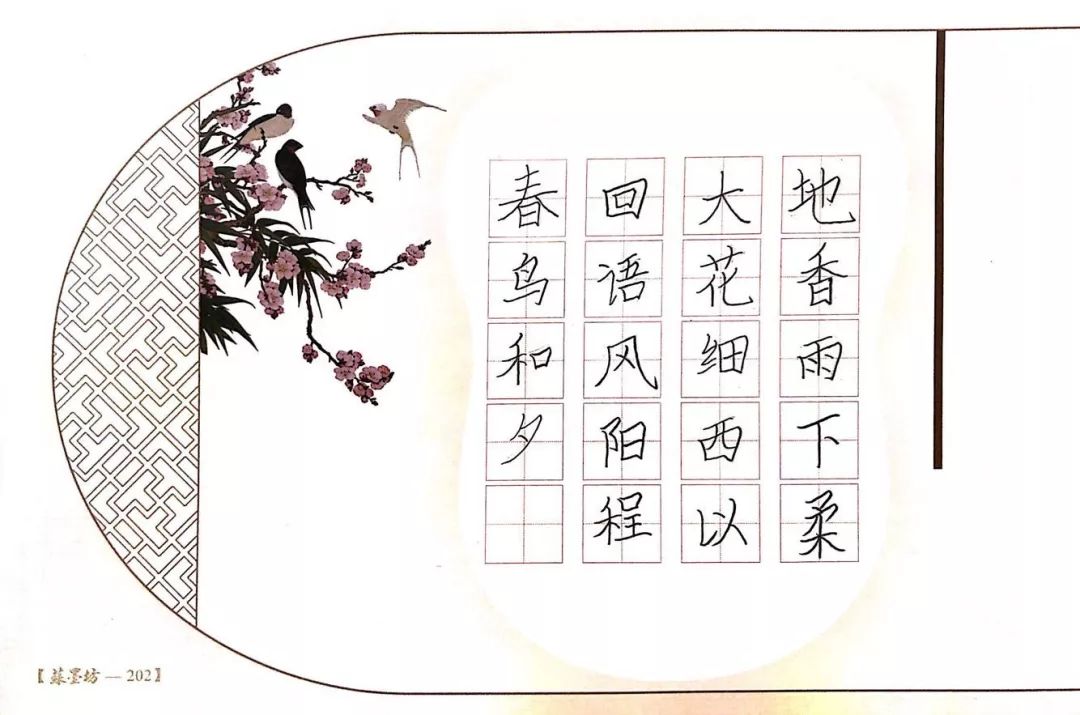 春回大地
鸟语花香
和风细雨
夕阳西下
程以柔
【蘇墨坊 — 202】